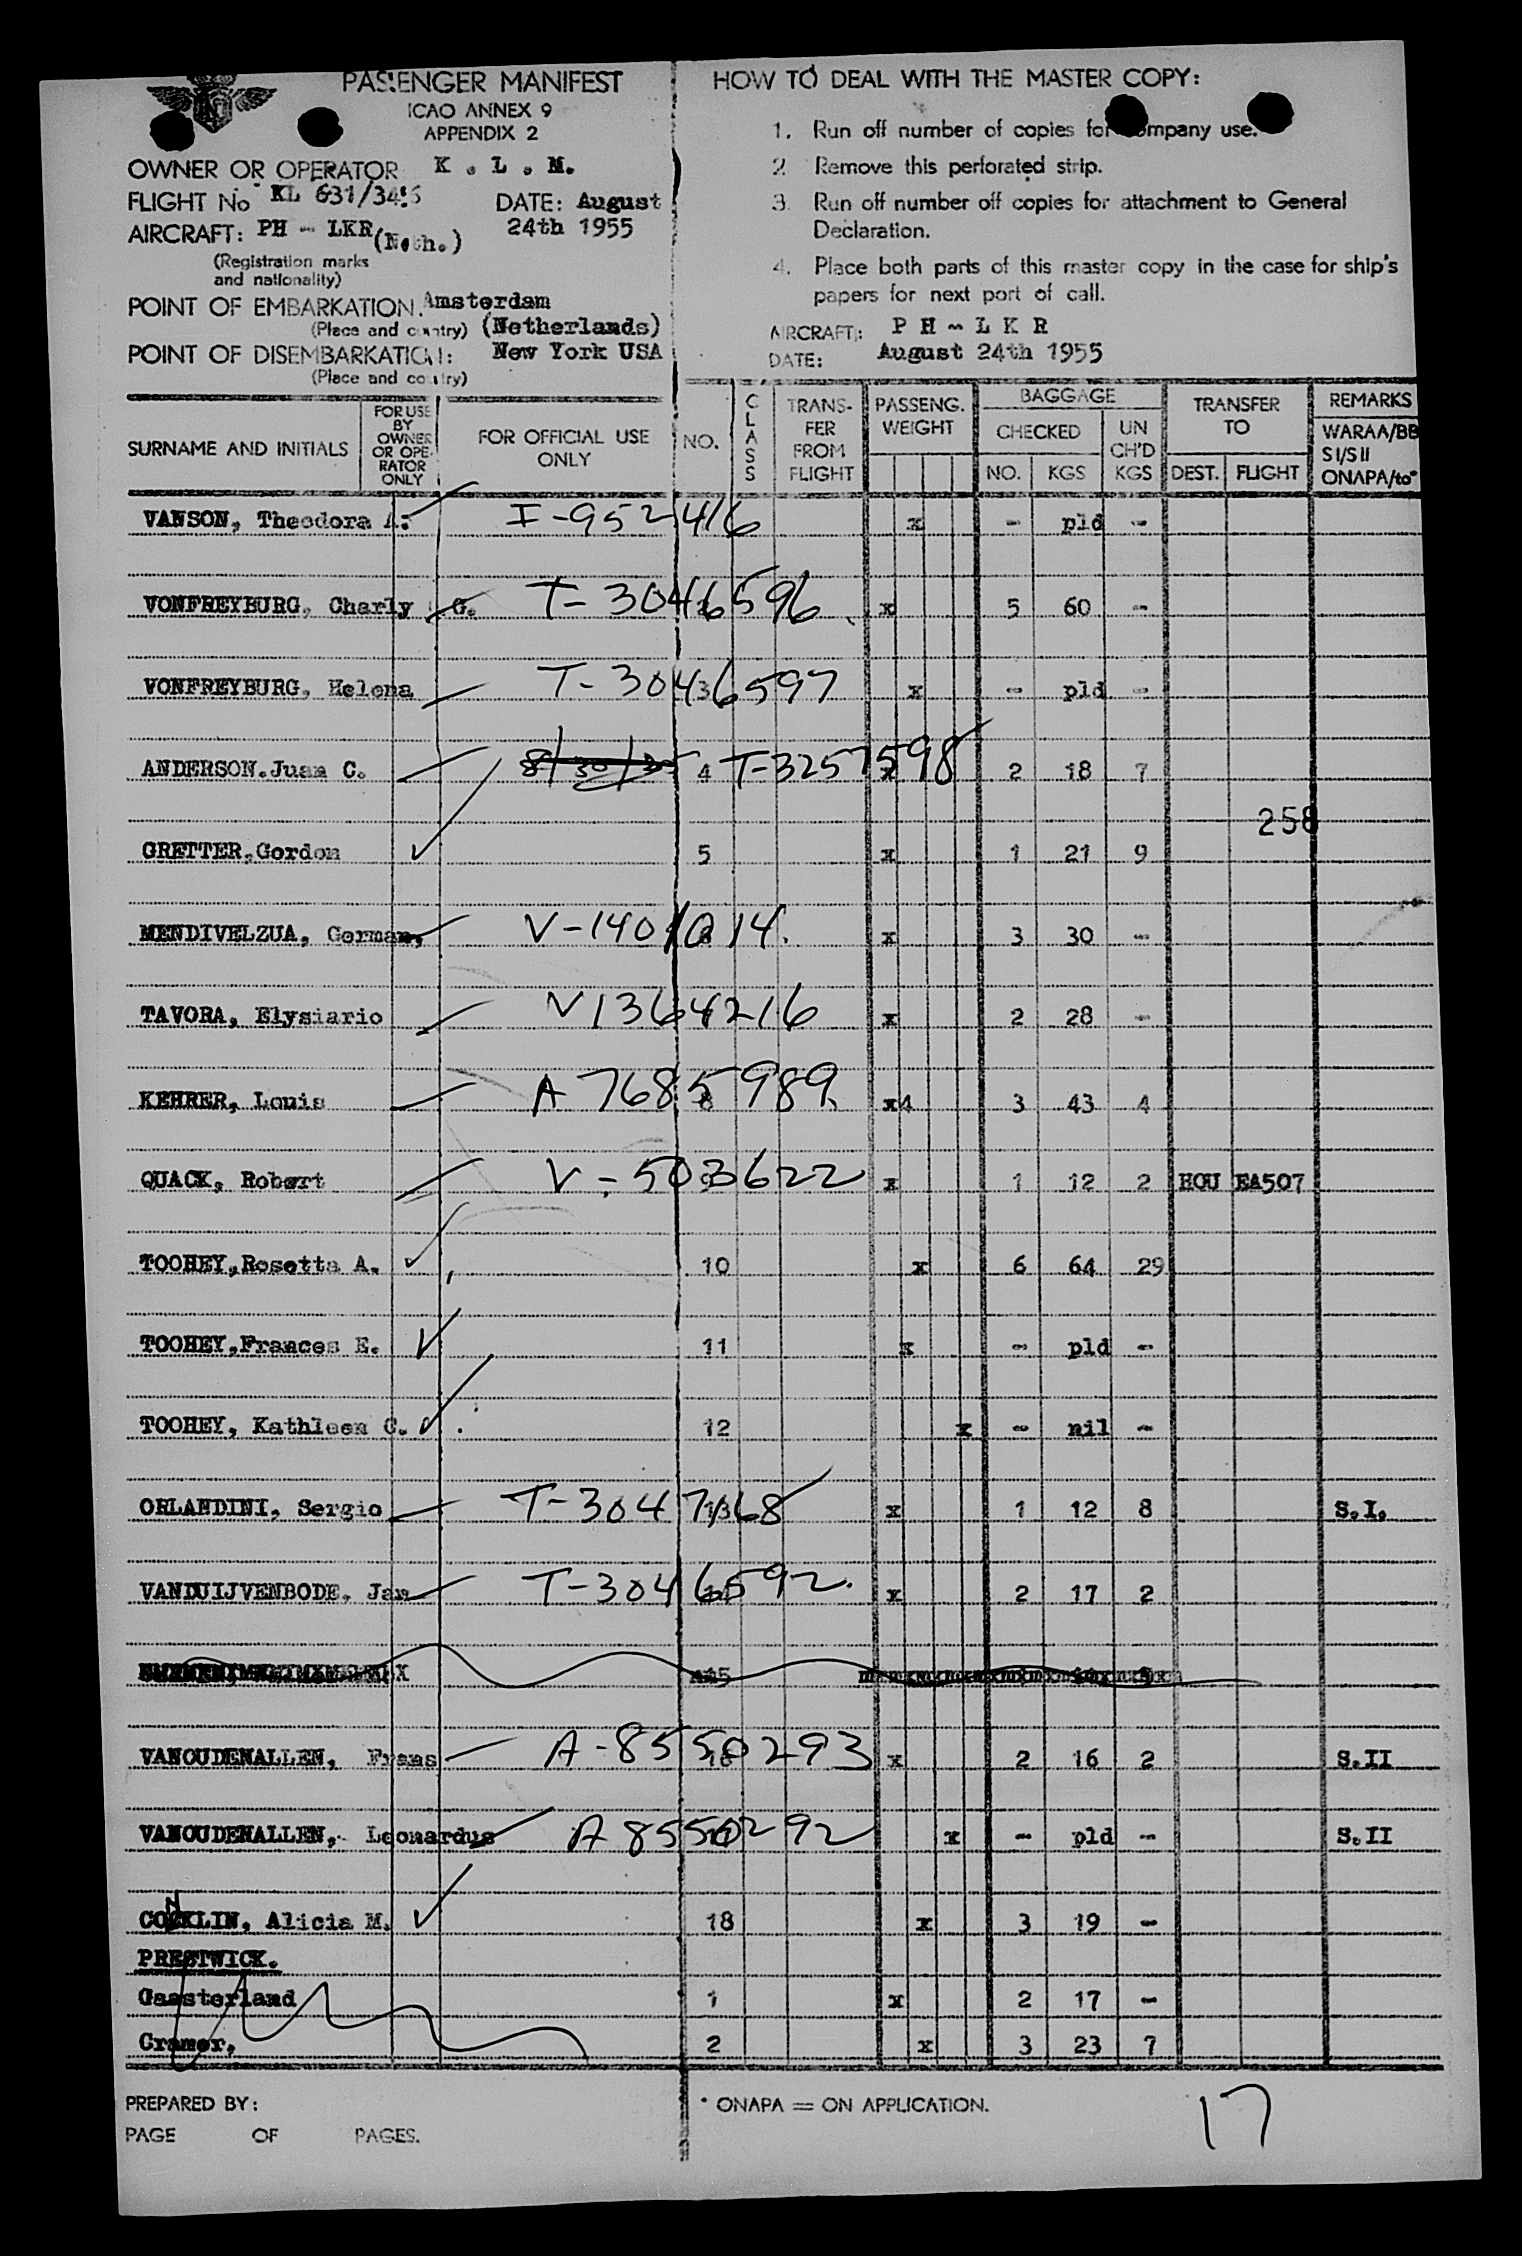 PASSENGER MANIFEST
ICAO ANNEX 9
APPENDIX 2
OWNER OR OPERATOR K . L . M.
FLIGHT No KL 631/
DATE: August 24th 1955
AIRCRAFT: PH - LKR (Neth.)
(Registration marks
and nationality)
POINT OF EMBARKATION. Amsterdam
(Place and country) (Netherlands)
POINT OF DISEMBARKATION: New York USA
(Place and country)
HOW TO DEAL WITH THE MASTER COPY:
1. Run off number of copies for company use.
2. Remove this perforated strip.
3. Run off number off copies for attachment to General
Declaration.
4. Place both parts of this master copy in the case for ship's
papers for next port of call.
AIRCRAFT: P H - L K R
DATE: August 24th 1955
SURNAME AND INITIALS
FOR USE BY OWNER OR OPERATOR ONLY
FOR OFFICIAL USE ONLY
NO.
CLASS
TRANSFER FROM FLIGHT
PASSENG. WEIGHT
BAGGAGE
CHECKED
NO. KGS
UN CH'D KGS
TRANSFER TO
DEST. FLIGHT
REMARKS
WARAA/BB
S I/S II
ONAPA/to*
VANSON, Theodora A. I-952416 x - pld -
VONFREYBURG, Charly G. T-3046596 x 5 60 -
VONFREYBURG, Helena T-3046597 3 x - pld -
ANDERSON.Juan C. 8/30/55 4 T-3257598 x 2 18 7
258
GRETTER,Gordon 5 x 1 21 9
MENDIVELZUA, German, V-1401014. x 3 30 -
TAVORA, Elysiario V1364216 x 2 28 -
KEHRER, Louis A 7685989 8 x4 3 43 4
QUACK, Robert V-503622 x 1 12 2 HOU EA507
TOOHEY,Rosetta A. 10 x 6 64 29
TOOHEY,Frances E. 11 x - pld -
TOOHEY, Kathleen C. 12 x - nil -
ORLANDINI, Sergio T-3047168 13 x 1 12 8 S.I.
VANDUIJVENBODE, Jan T-3046592. x 2 17 2
15
VANOUDENALLEN, Frans A-8550293 16 x 2 16 2 S.II
VANOUDENALLEN, Leonardus A8550292 x - pld - S.II
CONKLIN, Alicia M. 18 x 3 19 -
PRESTWICK.
Gaasterland 1 x 2 17 -
Cramer, 2 x 3 23 7
PREPARED BY:
PAGE OF PAGES.
* ONAPA = ON APPLICATION.
17